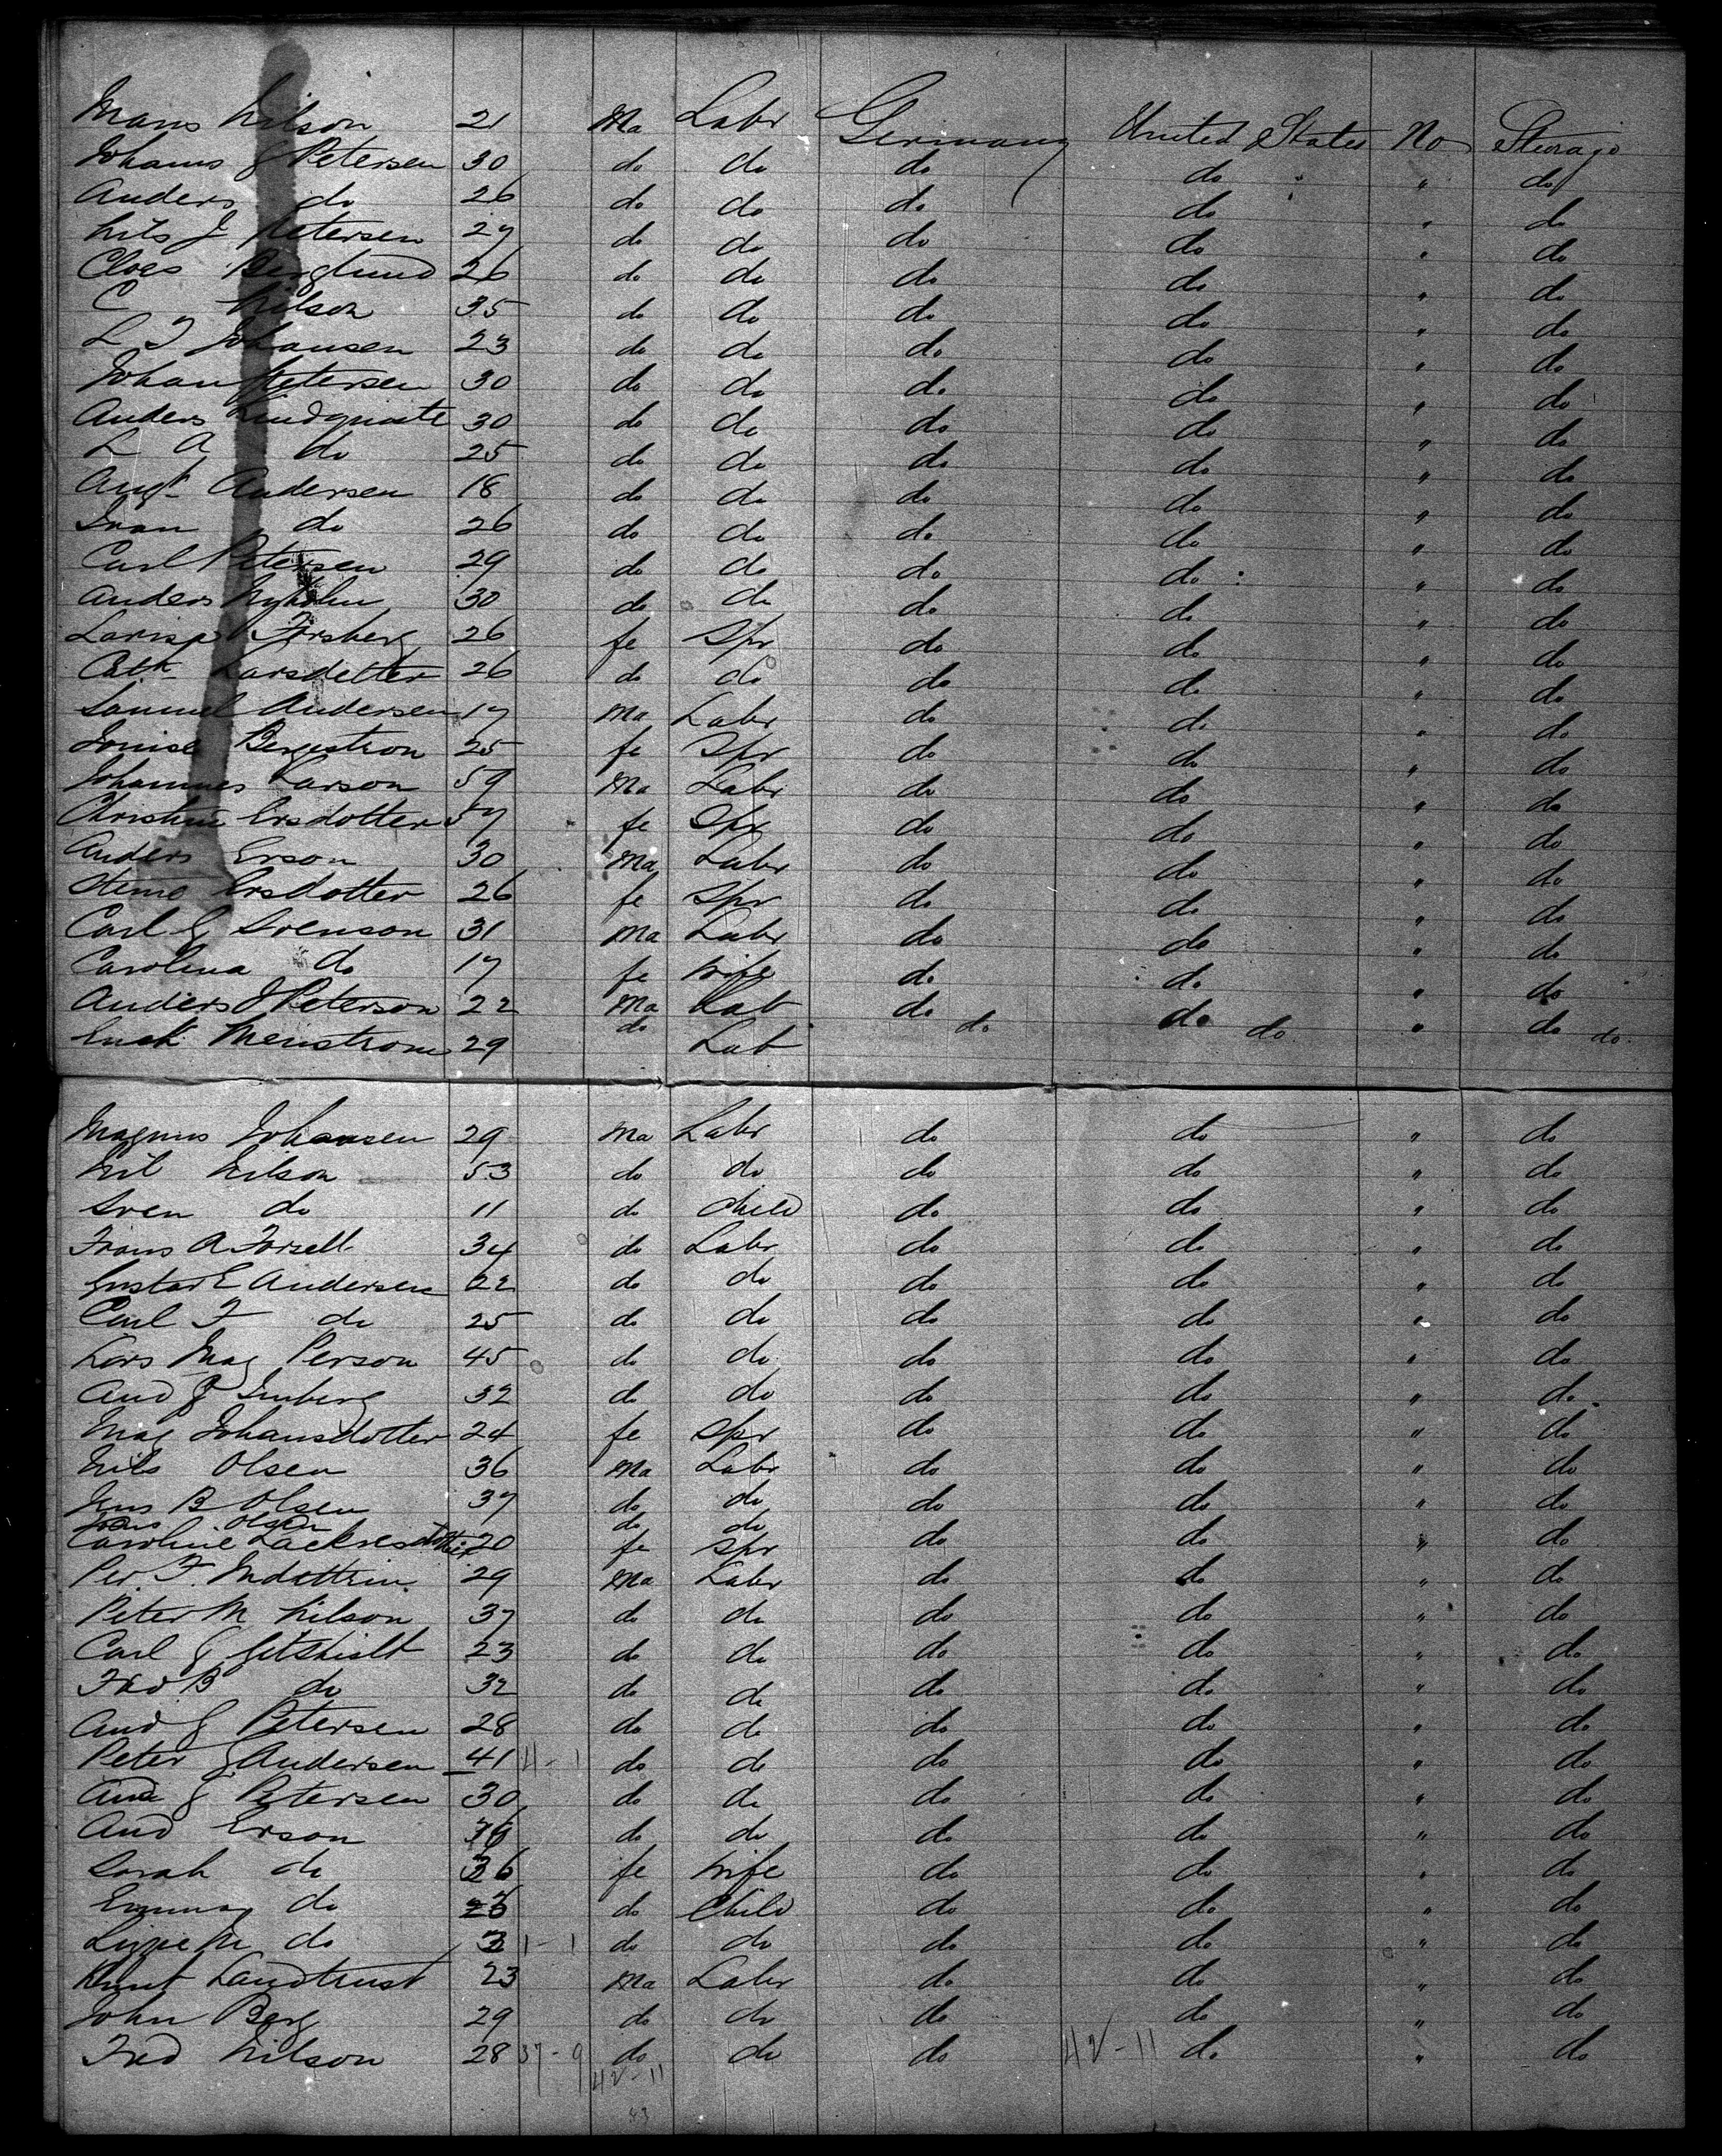 Mans Nilson 21 Ma Labr Germany United States No Steerage
Johanis G Petersen 30 do do do do " do
Anders do 26 do do do do " do
Nils J Petersen 27 do do do do " do
Claes Berglund 26 do do do do " do
C Nilson 35 do do do do " do
L J Johansen 23 do do do do " do
Johan Petersen 30 do do do do " do
Anders Lindquiste 30 do do do do " do
L A do 25 do do do do " do
Augt Andersen 18 do do do do " do
Ivan do 26 do do do do " do
Carl Petersen 29 do do do do " do
Anders Nyholm 30 do do do do " do
Forsberg 26 fe Spr do do " do
Cath Larsdetter 26 do do do do " do
Samuel Andersen 17 Ma Labr do do " do
Louise Bergstron 25 fe Spr do do " do
Johannes Larson 59 Ma Labr do do " do
Christine Ersdotter 57 fe Spr do do " do
Anders Erson 30 Ma Labr do do " do
Ersdotter 26 fe Spr do do " do
Carl G Svenson 31 Ma Labr do do " do
Carolina do 17 fe wife do do " do
Anders J Peterson 22 Ma Lab do do " do
29 do Lab do do do
Magnus Johansen 29 Ma Labr do do " do
Nil Nilson 53 do do do do " do
Sven do 11 do child do do " do
Frans A Forsell 34 do Labr do do " do
Gustav E Andersen 22 do do do do " do
Carl F do 25 do do do do " do
Lars Mag Person 45 do do do do " do
And J 32 do do do do " do
Mag Johansdotter 24 fe Spr do do " do
Nils Olsen 36 Ma Labr do do " do
Jens B Olsen 37 do do do do " do
Jons Olsen do do
Caroline 20 fe Spr do do " do
Per F. 29 Ma Labr do do " do
Peter M Nilson 37 do do do do " do
Carl G 23 do do do do " do
Fred B do 32 do do do do " do
And G Petersen 28 do do do do " do
Peter G Andersen 41 11-1 do do do do " do
And G Petersen 30 do do do do " do
And Erson 36 do do do do " do
Sarah do 36 fe wife do do " do
Emma do do Child do do " do
Lizzie M do 3 1-1 do do do do " do
Knut Landtrust 23 Ma Labr do do " do
John Berg 29 do do do do " do
Fred Nilson 28 37-9 do do do 42-11 do " do
42-11